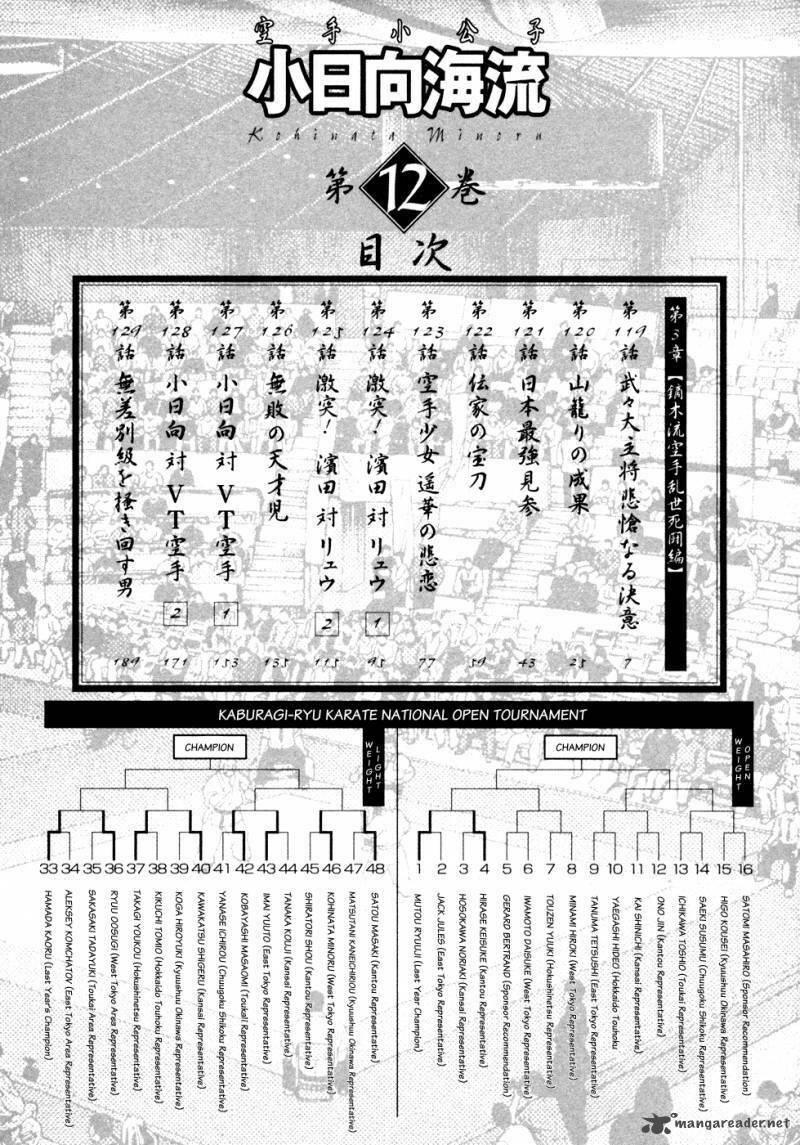 空手小公子
小日向海流
Kohinata Minoru
第12巻
目次
第5章【鏑木流空手乱世死闘編】
第119話 武々大主将悲愴なる決意 7
第120話 山籠りの成果 25
第121話 日本最強見参 43
第122話 伝家の宝刀 59
第123話 空手少女遥華の悲恋 77
第124話 激突！濱田対リュウ 1 95
第125話 激突！濱田対リュウ 2 115
第126話 無敗の天才児 135
第127話 小日向対VT空手 1 153
第128話 小日向対VT空手 2 171
第129話 無差別級を掻き回す男 189
KABURAGI-RYU KARATE NATIONAL OPEN TOURNAMENT
CHAMPION
LIGHT
WEIGHT
33 HAMADA KAORU (Last Year's Champion)
34 ALEKSEY KOMCHATOV (East Tokyo Area Representative)
35 SAKASAKI TADAYUKI (Toukai Area Representative)
36 RYUU OOSUGI (West Tokyo Area Representative)
37 TAKAGI YOUKOU (Hokushinetsu Representative)
38 KIKUCHI TOMIO (Hokkaido Touhoku Representative)
39 KOGA HIROYUKI (Kyuushuu Okinawa Representative)
40 KAWAKATSU SHIGERU (Kansai Representative)
41 YANASE ICHIROU (Chuugoku Shikoku Representative)
42 KOBAYASHI MASAOMI (Toukai Representative)
43 IMAI YUUTO (East Tokyo Representative)
44 TANAKA KOUJI (Kansai Representative)
45 SHIRATORI SHOU (Kantou Representative)
46 KOHINATA MINORU (West Tokyo Representative)
47 MATSUTANI KANEICHIROU (Kyuushuu Okinawa Representative)
48 SATOU MASAKI (Kantou Representative)
CHAMPION
OPEN
WEIGHT
1 MUTOU RYUUJI (Last Year Champion)
2 JACK JULES (East Tokyo Representative)
3 HOSOKAWA NORIAKI (Kansai Representative)
4 HIRASE KEISUKE (Kantou Representative)
5 GERARD BERTRAND (Sponsor Recommendation)
6 IWAMOTO DAISUKE (West Tokyo Representative)
7 TOUZEN YUUKI (Hokushinetsu Representative)
8 MINAMI HIROKI (West Tokyo Representative)
9 TANUMA TETSUSHI (East Tokyo Representative)
10 YAEGASHI HIDEO (Hokkaido Touhoku
11 KAI SHINICHI (Kansai Representative)
12 ONO JIN (Kantou Representative)
13 ICHIKAWA TOSHIO (Toukai Representative)
14 SAEKI SUSUMU (Chuugoku Shikoku Representative)
15 HIGO KOUSEI (Kyuushuu Okinawa Representative)
16 SATOMI MASAHIRO (Sponsor Recommendation)
mangareader.net